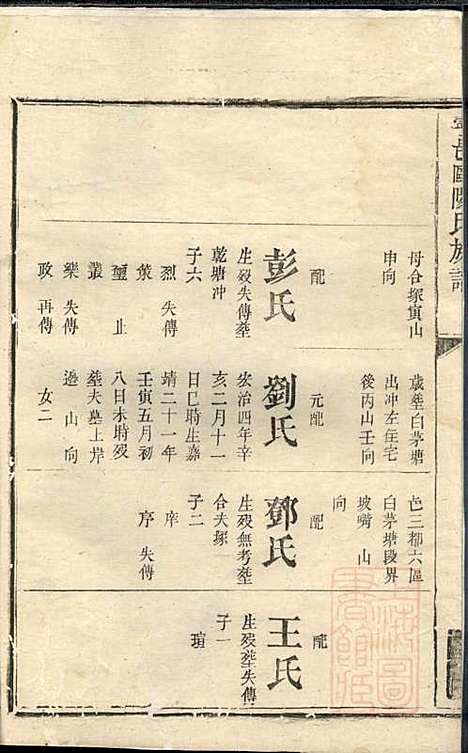 歐陽氏族譜
母合塚寅山
申向
配
彭氏
生歿失傳塟
乾塘冲
子六
烈 失傳
策
璽 止
叢
樂 失傳
政 再傳
歲塟白茅塘
出冲左住宅
後丙山壬向
元配
劉氏
宏治四年辛
亥二月十一
日巳時生嘉
靖二十一年
壬寅五月初
八日未時歿
塟夫墓上岸
邉山向
女二
邑三都六區
白茅塘段界
坡嘴山
向
配
鄧氏
生歿無考塟
合夫塚
子二
庠
序 失傳
配
王氏
生歿塟失傳
子一
瑄